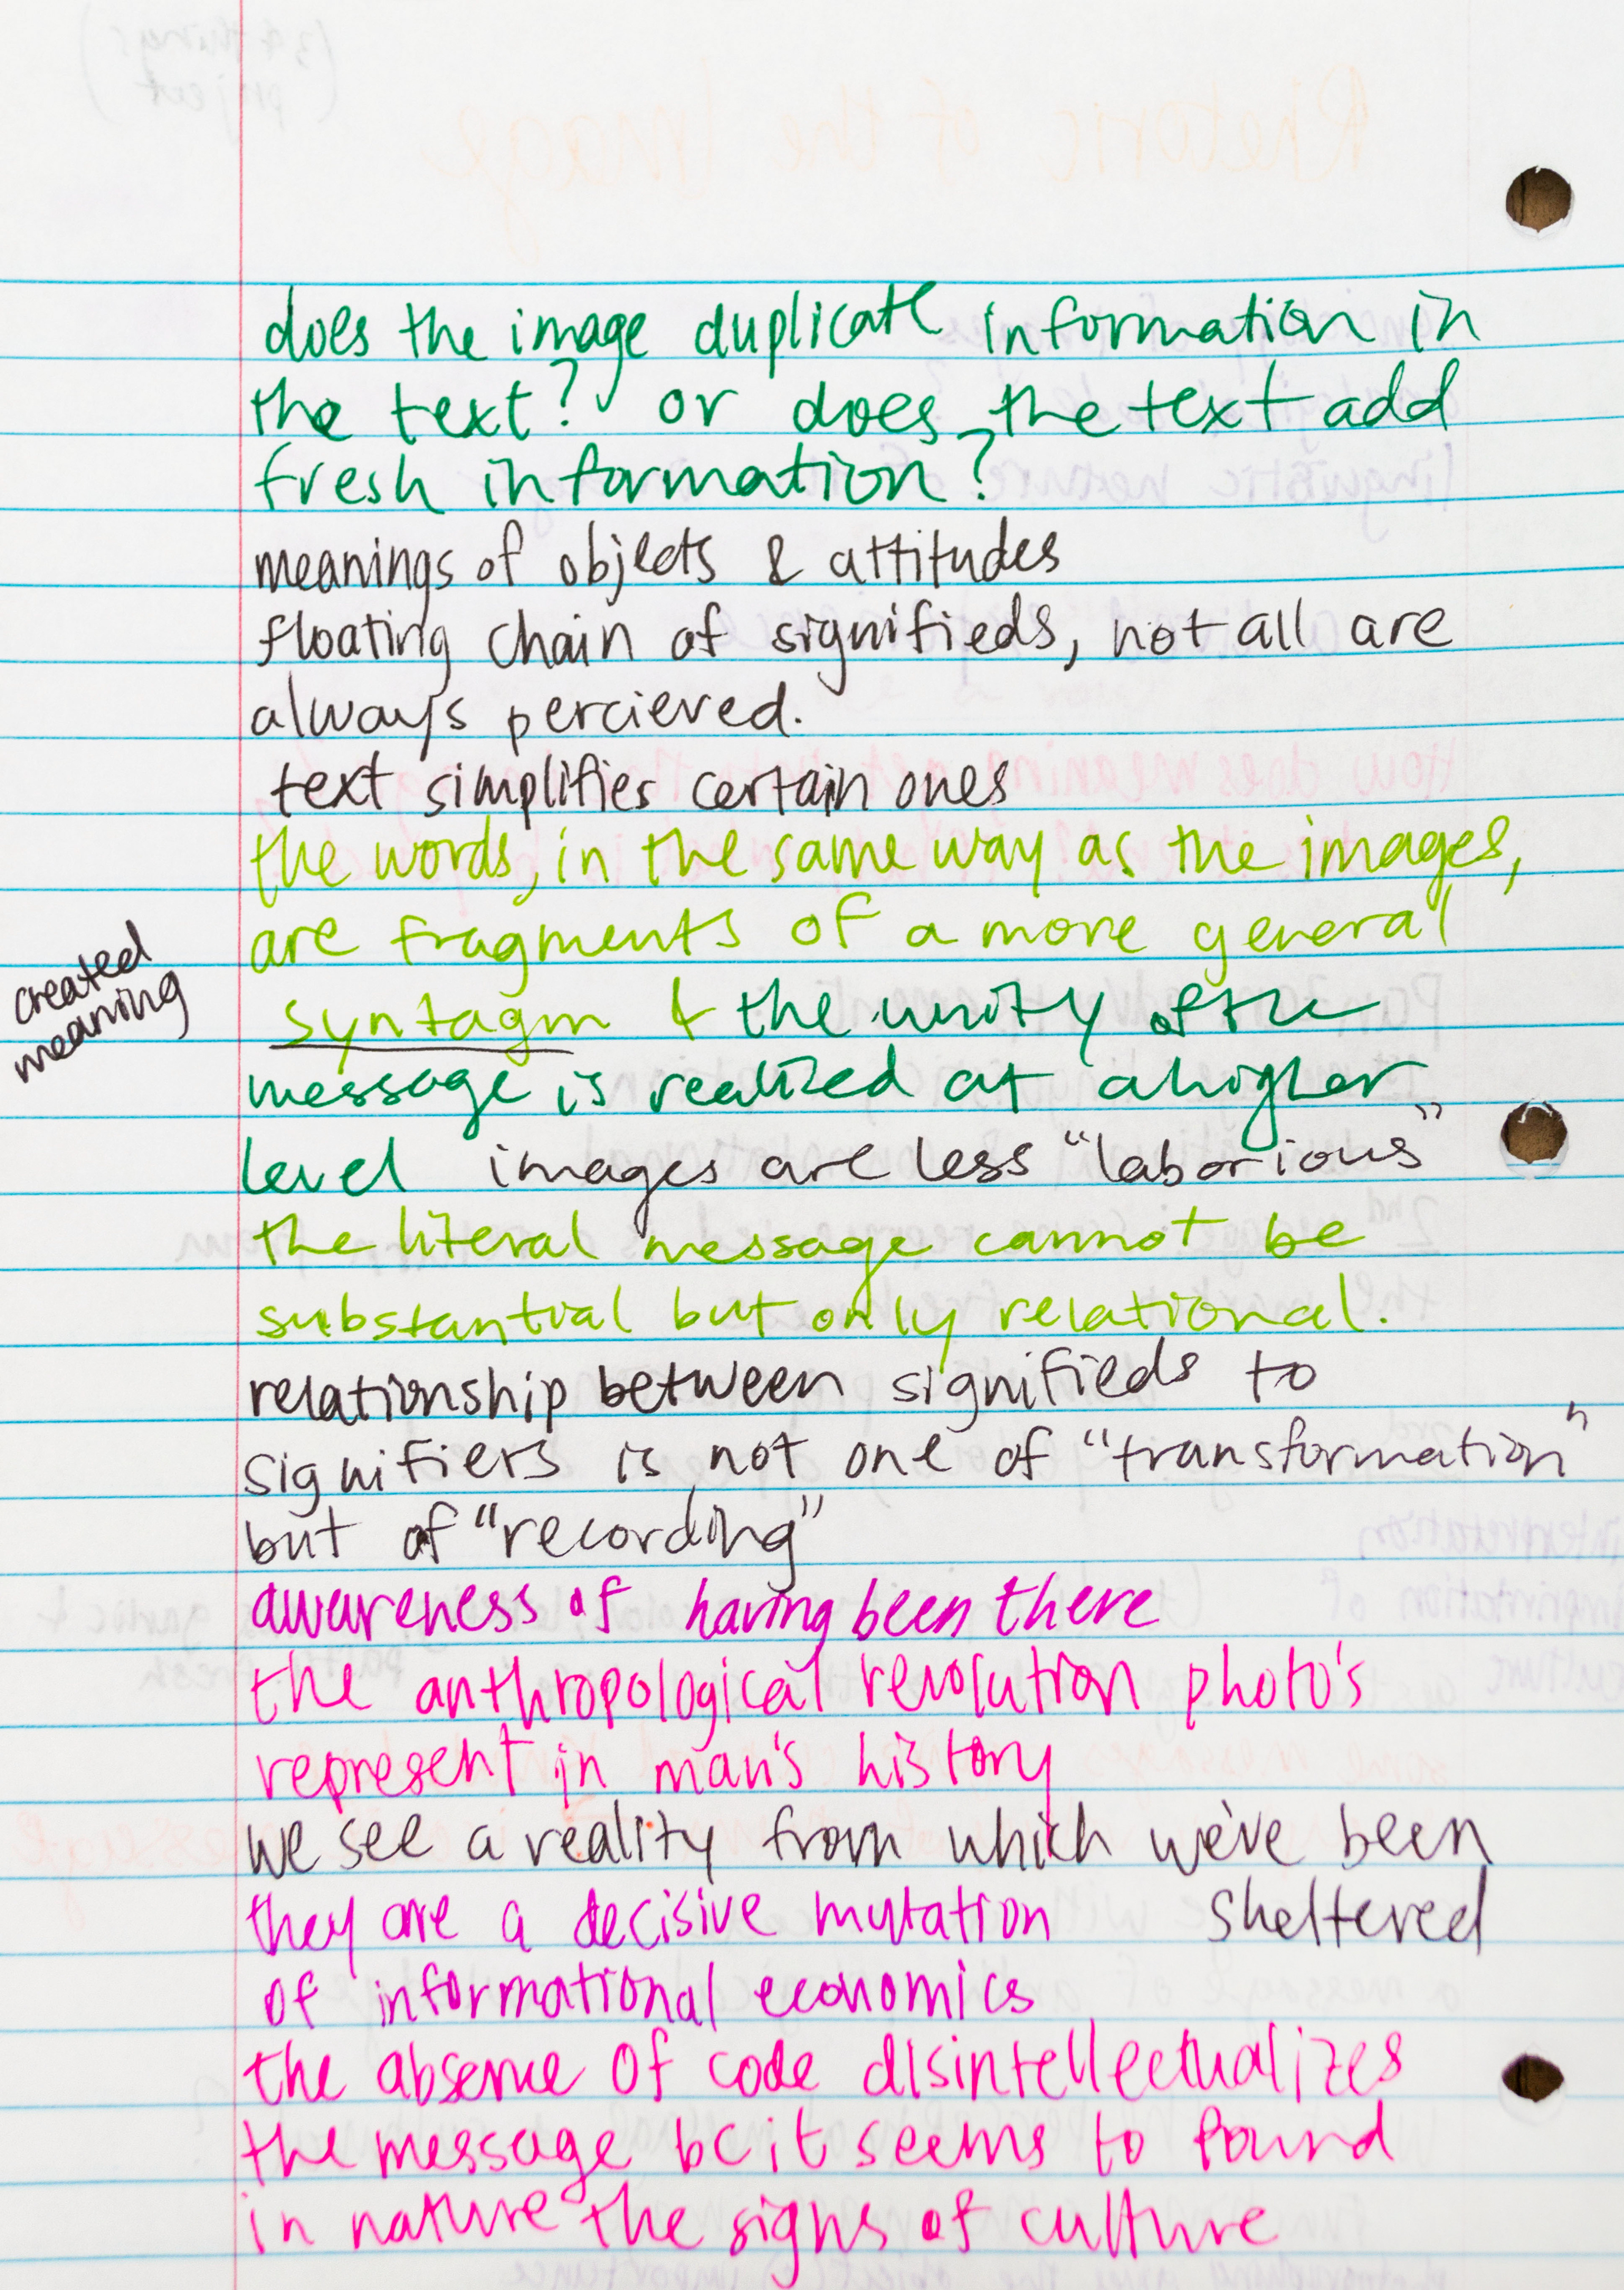 does the image duplicate information in
the text? or does the text add
fresh information?
meanings of objects & attitudes
floating chain of signifieds, not all are
always percieved.
text simplifies certain ones
the words, in the same way as the images,
are fragments of a more general
created
meaning
syntagm & the unity of the
message is realized at a higher
level images are less "laborious"
the literal message cannot be
substantial but only relational.
relationship between signifieds to
signifiers is not one of "transformation"
but of "recording"
awareness of having been there
the anthropological revolution photo's
represent in man's history
we see a reality from which we've been
sheltered
they are a decisive mutation
of informational economics
the absence of code disintellectualizes
the message bc it seems to found
in nature the signs of culture